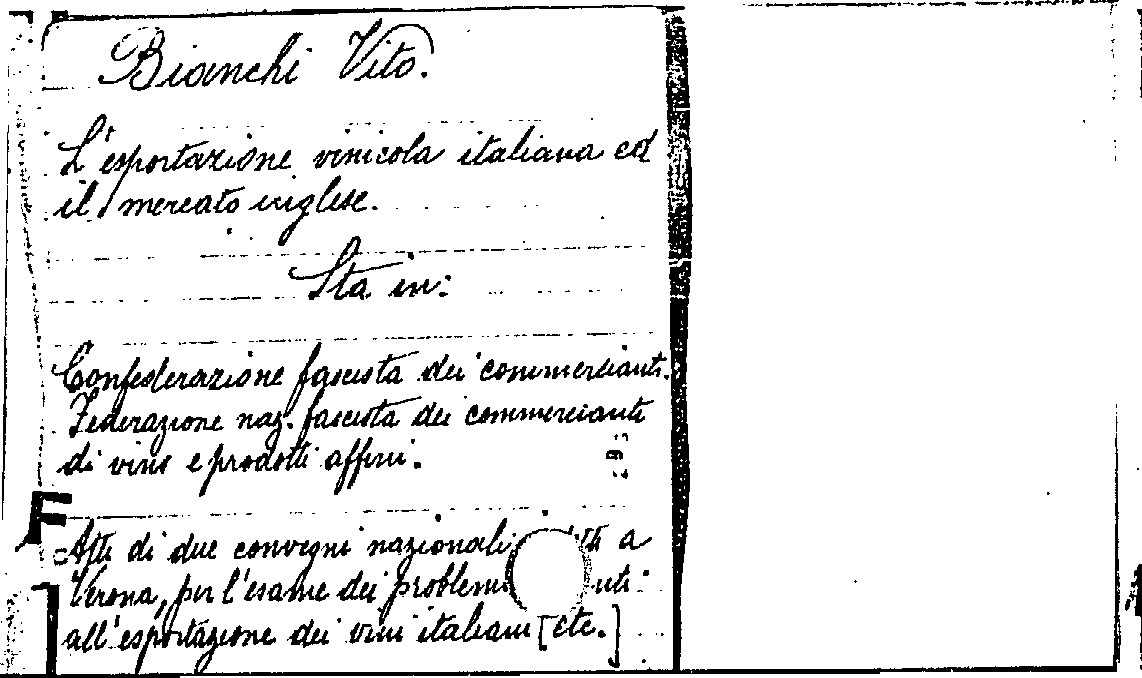 Bianchi Vito.
L'esportazione vinicola italiana ed
il mercato inglese.
Sta in:
Confederazione fascista dei commercianti.
Federazione naz. fascista dei commercianti
di vino e prodotti affini.
Atti di due convegni nazionali a
Verona, per l'esame dei problemi
all'esportazione dei vini italiani [etc.]